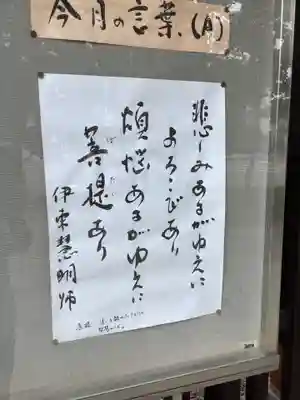 今月の言葉（A）
悲しみあるがゆえに
よろこびあり
煩悩あるがゆえに
菩提あり
ぼだい
伊東慧明師